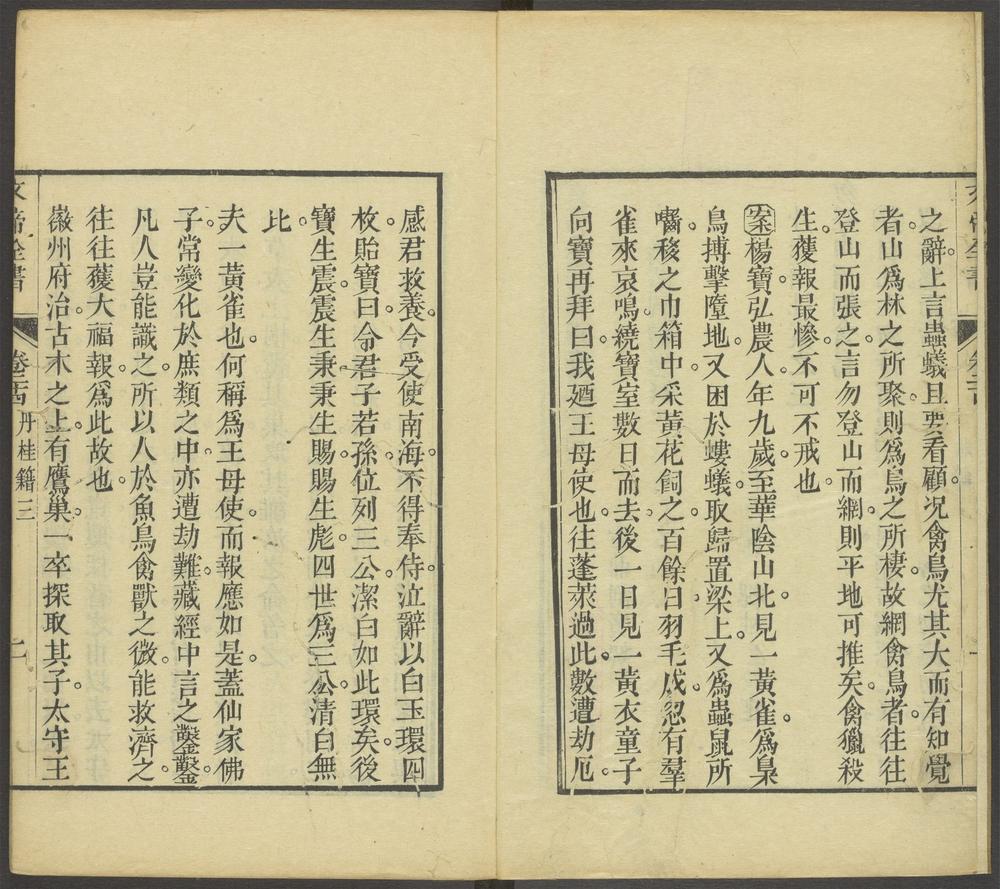 之辭上言蟲蟻且要看顧况禽鳥尤其大而有知覺
者山爲林之所聚則爲鳥之所棲故網禽鳥者往往
登山而張之言勿登山而網則平地可推矣禽獵殺
生獲報最慘不可不戒也
案楊寶弘農人年九歲至華陰山北見一黃雀爲梟
鳥搏擊墮地又困於螻蟻取歸置梁上又爲蟲鼠所
嚙移之巾箱中采黃花飼之百餘日羽毛成忽有羣
雀來哀鳴繞寶室數日而去後一日見一黃衣童子
向寶再拜曰我廼王母使也往蓬萊過此數遭劫厄
感君救養今受使南海不得奉侍泣辭以白玉環四
枚貽寶曰令君子若孫位列三公潔白如此環矣後
寶生震震生秉秉生賜賜生彪四世爲三公清白無
比
夫一黃雀也何稱爲王母使而報應如是蓋仙家佛
子常變化於庶類之中亦遭劫難藏經中言之鑿鑿
凡人豈能識之所以人於魚鳥禽獸之微能救濟之
往往獲大福報爲此故也
徽州府治古木之上有鷹巢一卒探取其子太守王
文帝全書 卷 丹桂籍三